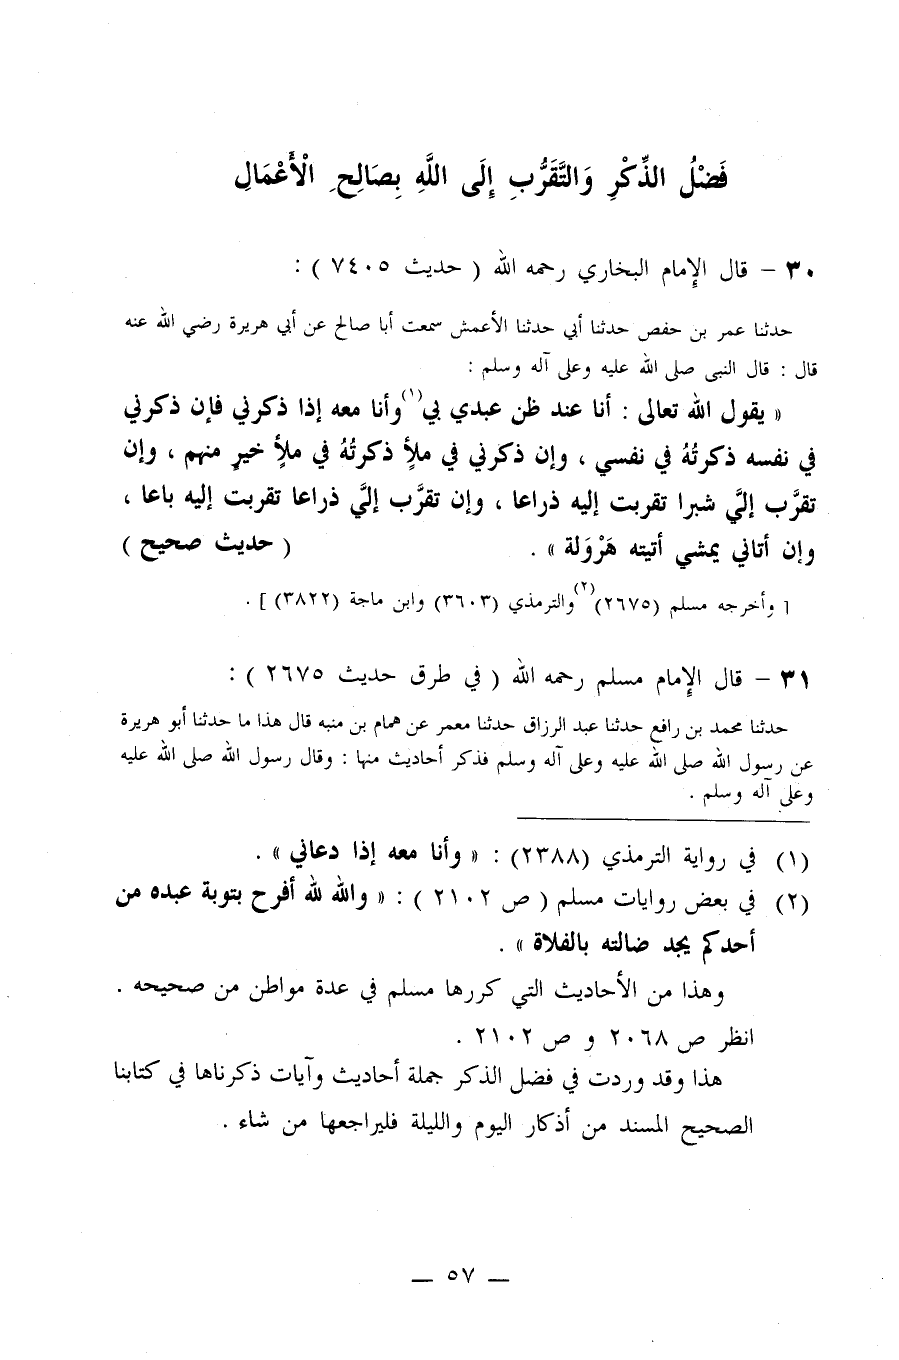 فَضْلُ الذِّكْرِ وَالتَّقَرُّبِ إِلَى اللَّهِ بِصَالِحِ الْأَعْمَالِ
٣٠ – قال الإمام البخاري رحمه الله ( حديث ٧٤٠٥ ) :
حدثنا عمر بن حفص حدثنا أبي حدثنا الأعمش سمعت أبا صالح عن أبي هريرة رضي الله عنه
قال : قال النبي صلى الله عليه وعلى آله وسلم :
« يقول الله تعالى : أنا عند ظن عبدي بي(١) وأنا معه إذا ذكرني فإن ذكرني
في نفسه ذكرتُهُ في نفسي ، وإن ذكرني في ملأٍ ذكرتُهُ في ملأٍ خيرٍ منهم ، وإن
تقرَّب إليَّ شبرا تقربت إليه ذراعا ، وإن تقرَّب إليَّ ذراعا تقربت إليه باعا ،
وإن أتاني يمشي أتيته هَرْوَلة » . ( حديث صحيح )
[ وأخرجه مسلم (٢٦٧٥)(٢) والترمذي (٣٦٠٣) وابن ماجة (٣٨٢٢) ] .
٣١ – قال الإمام مسلم رحمه الله ( في طرق حديث ٢٦٧٥ ) :
حدثنا محمد بن رافع حدثنا عبد الرزاق حدثنا معمر عن همام بن منبه قال هذا ما حدثنا أبو هريرة
عن رسول الله صلى الله عليه وعلى آله وسلم فذكر أحاديث منها : وقال رسول الله صلى الله عليه
وعلى آله وسلم .
(١) في رواية الترمذي (٢٣٨٨) : « وأنا معه إذا دعاني » .
(٢) في بعض روايات مسلم ( ص ٢١٠٢ ) : « والله لله أفرح بتوبة عبده من
أحدكم يجد ضالته بالفلاة » .
وهذا من الأحاديث التي كررها مسلم في عدة مواطن من صحيحه .
انظر ص ٢٠٦٨ و ص ٢١٠٢ .
هذا وقد وردت في فضل الذكر جملة أحاديث وآيات ذكرناها في كتابنا
الصحيح المسند من أذكار اليوم والليلة فليراجعها من شاء .
— ٥٧ —